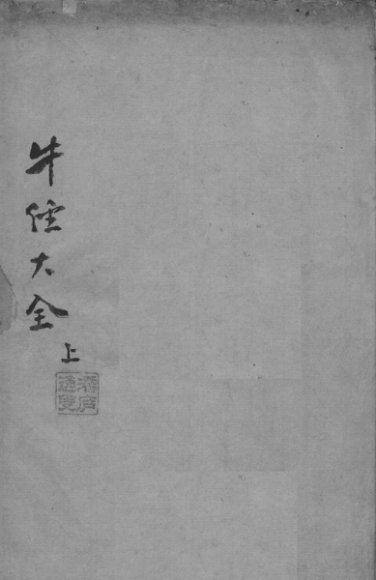 牛經大全
上